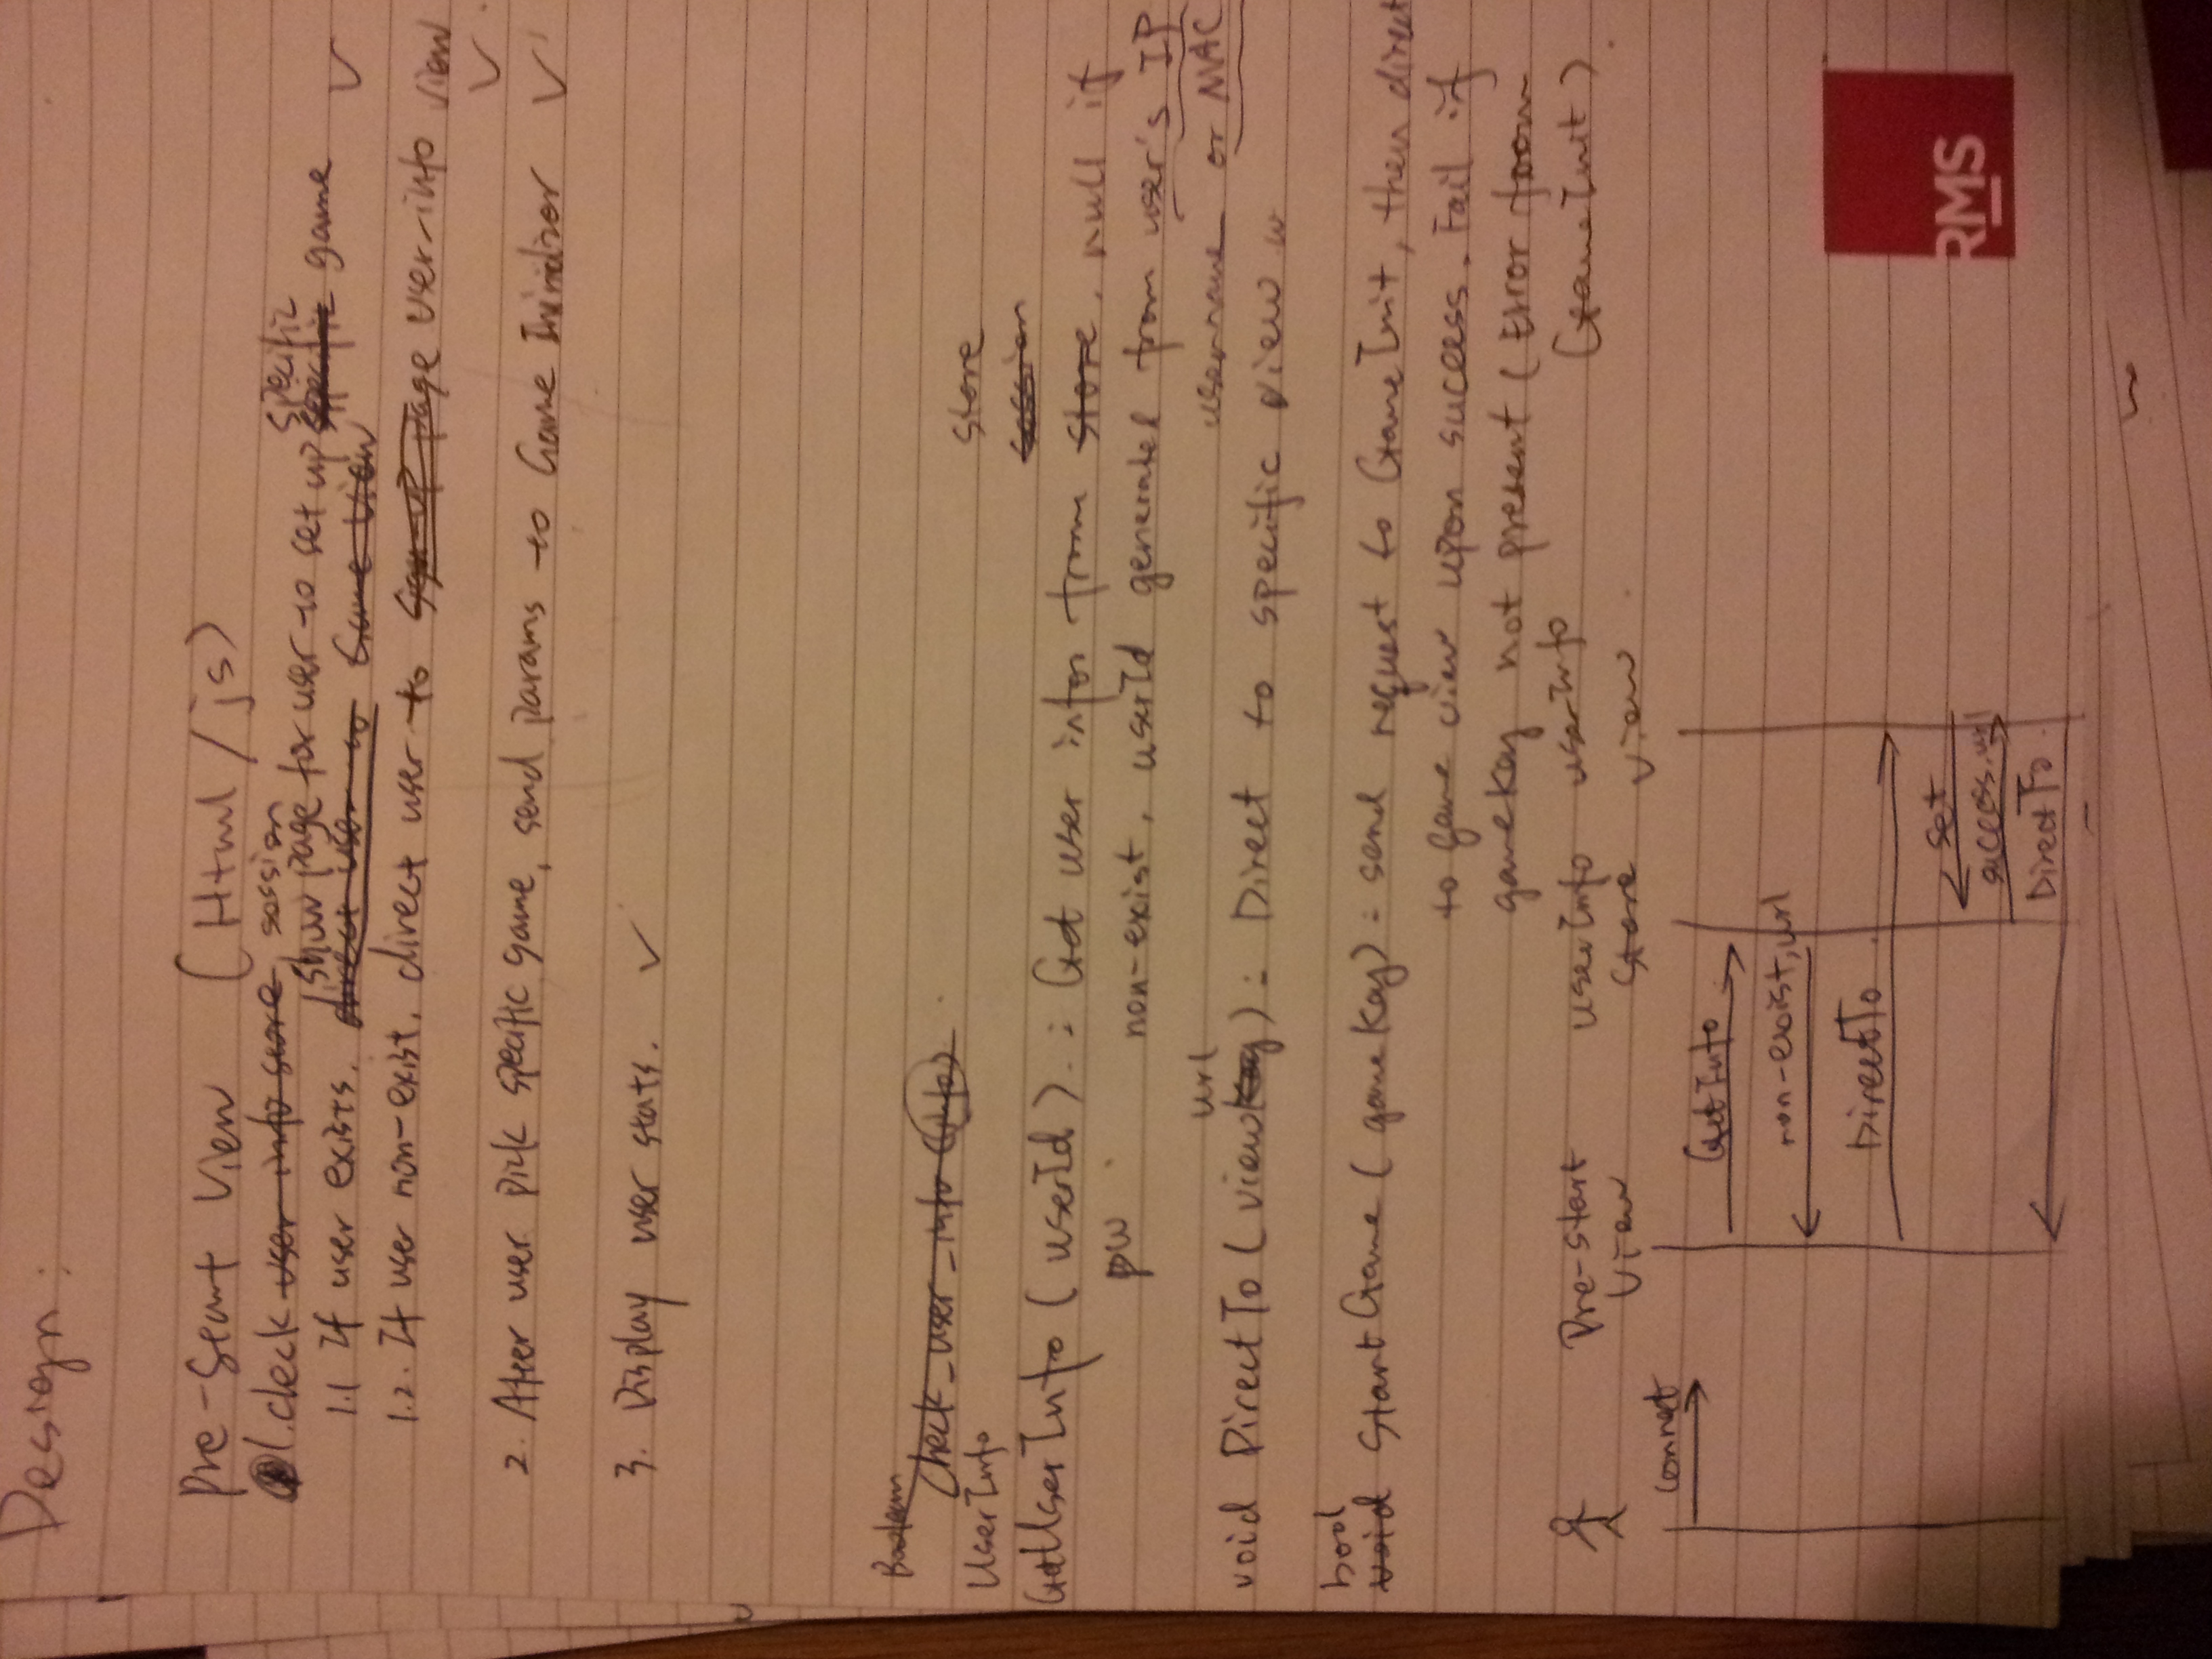 Design:
Pre-Start View (Html/js)
1. check user info store session
1.1 If user exists. direct user to Game View show page for user to set up specific specific game ✓
1.2. If user non-exist, direct user to page user-info view ✓
2. After user pick specific game, send params to Game Initializor ✓
3. Display user stats. ✓
Boolean check_user_info (info)
UserInfo store
session
GetUserInfo (userId). : Get user infor from store. null if
pw non-exist, userId generated from user's IP
username or MAC
url
void DirectTo (viewkey) : Direct to specific view.
bool
void StartGame (gameKey) : send request to GameInit, then direct
to game view upon success. Fail if
gamekey not present (Error from
GameInit).
Pre-start View
userInfo Store
userInfo view
connect
GetInfo
non-exist, url
DirectTo
set
success, url
DirectTo.
RMS